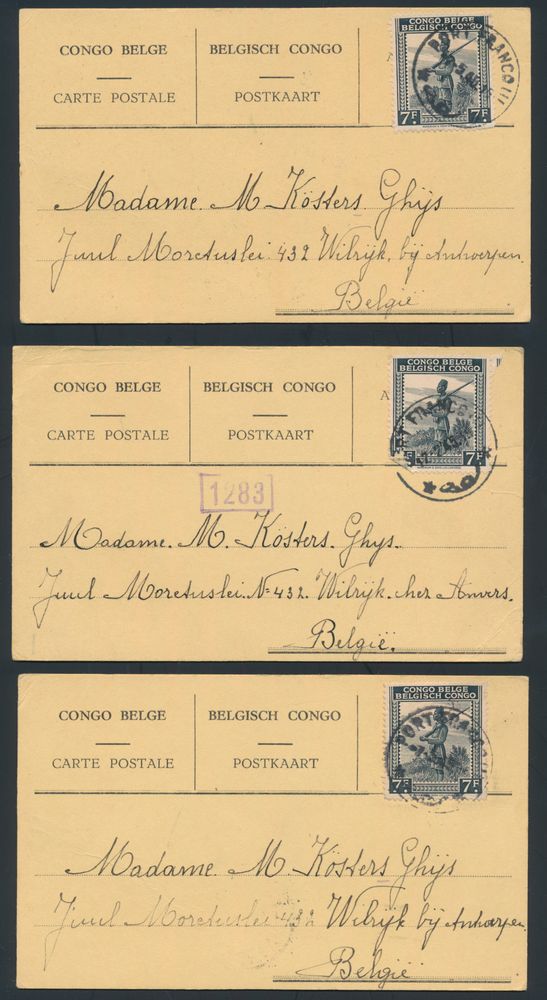 CONGO BELGE
BELGISCH CONGO
CARTE POSTALE
POSTKAART
A
CONGO BELGE
BELGISCH CONGO
7F 7F
PORT-FRANCQUI
Madame. M. Kösters Ghijs
Juul Moretuslei 432 Wilrijk, bij Antwerpen.
België
CONGO BELGE
BELGISCH CONGO
CARTE POSTALE
POSTKAART
A
CONGO BELGE
BELGISCH CONGO
7F
1283
Madame. M. Kösters. Ghijs.
Juul Moretuslei. No 432. Wilrijk. chez Anvers.
België.
CONGO BELGE
BELGISCH CONGO
CARTE POSTALE
POSTKAART
CONGO BELGE
BELGISCH CONGO
7F 7F
PORT-FRANCQUI
Madame M. Kösters Ghijs
Juul Moretuslei 432 Wilrijk bij Antwerpen
België